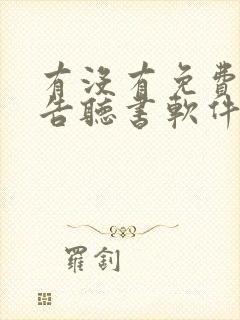 有沒有免費
告聽書軟件
羅釗